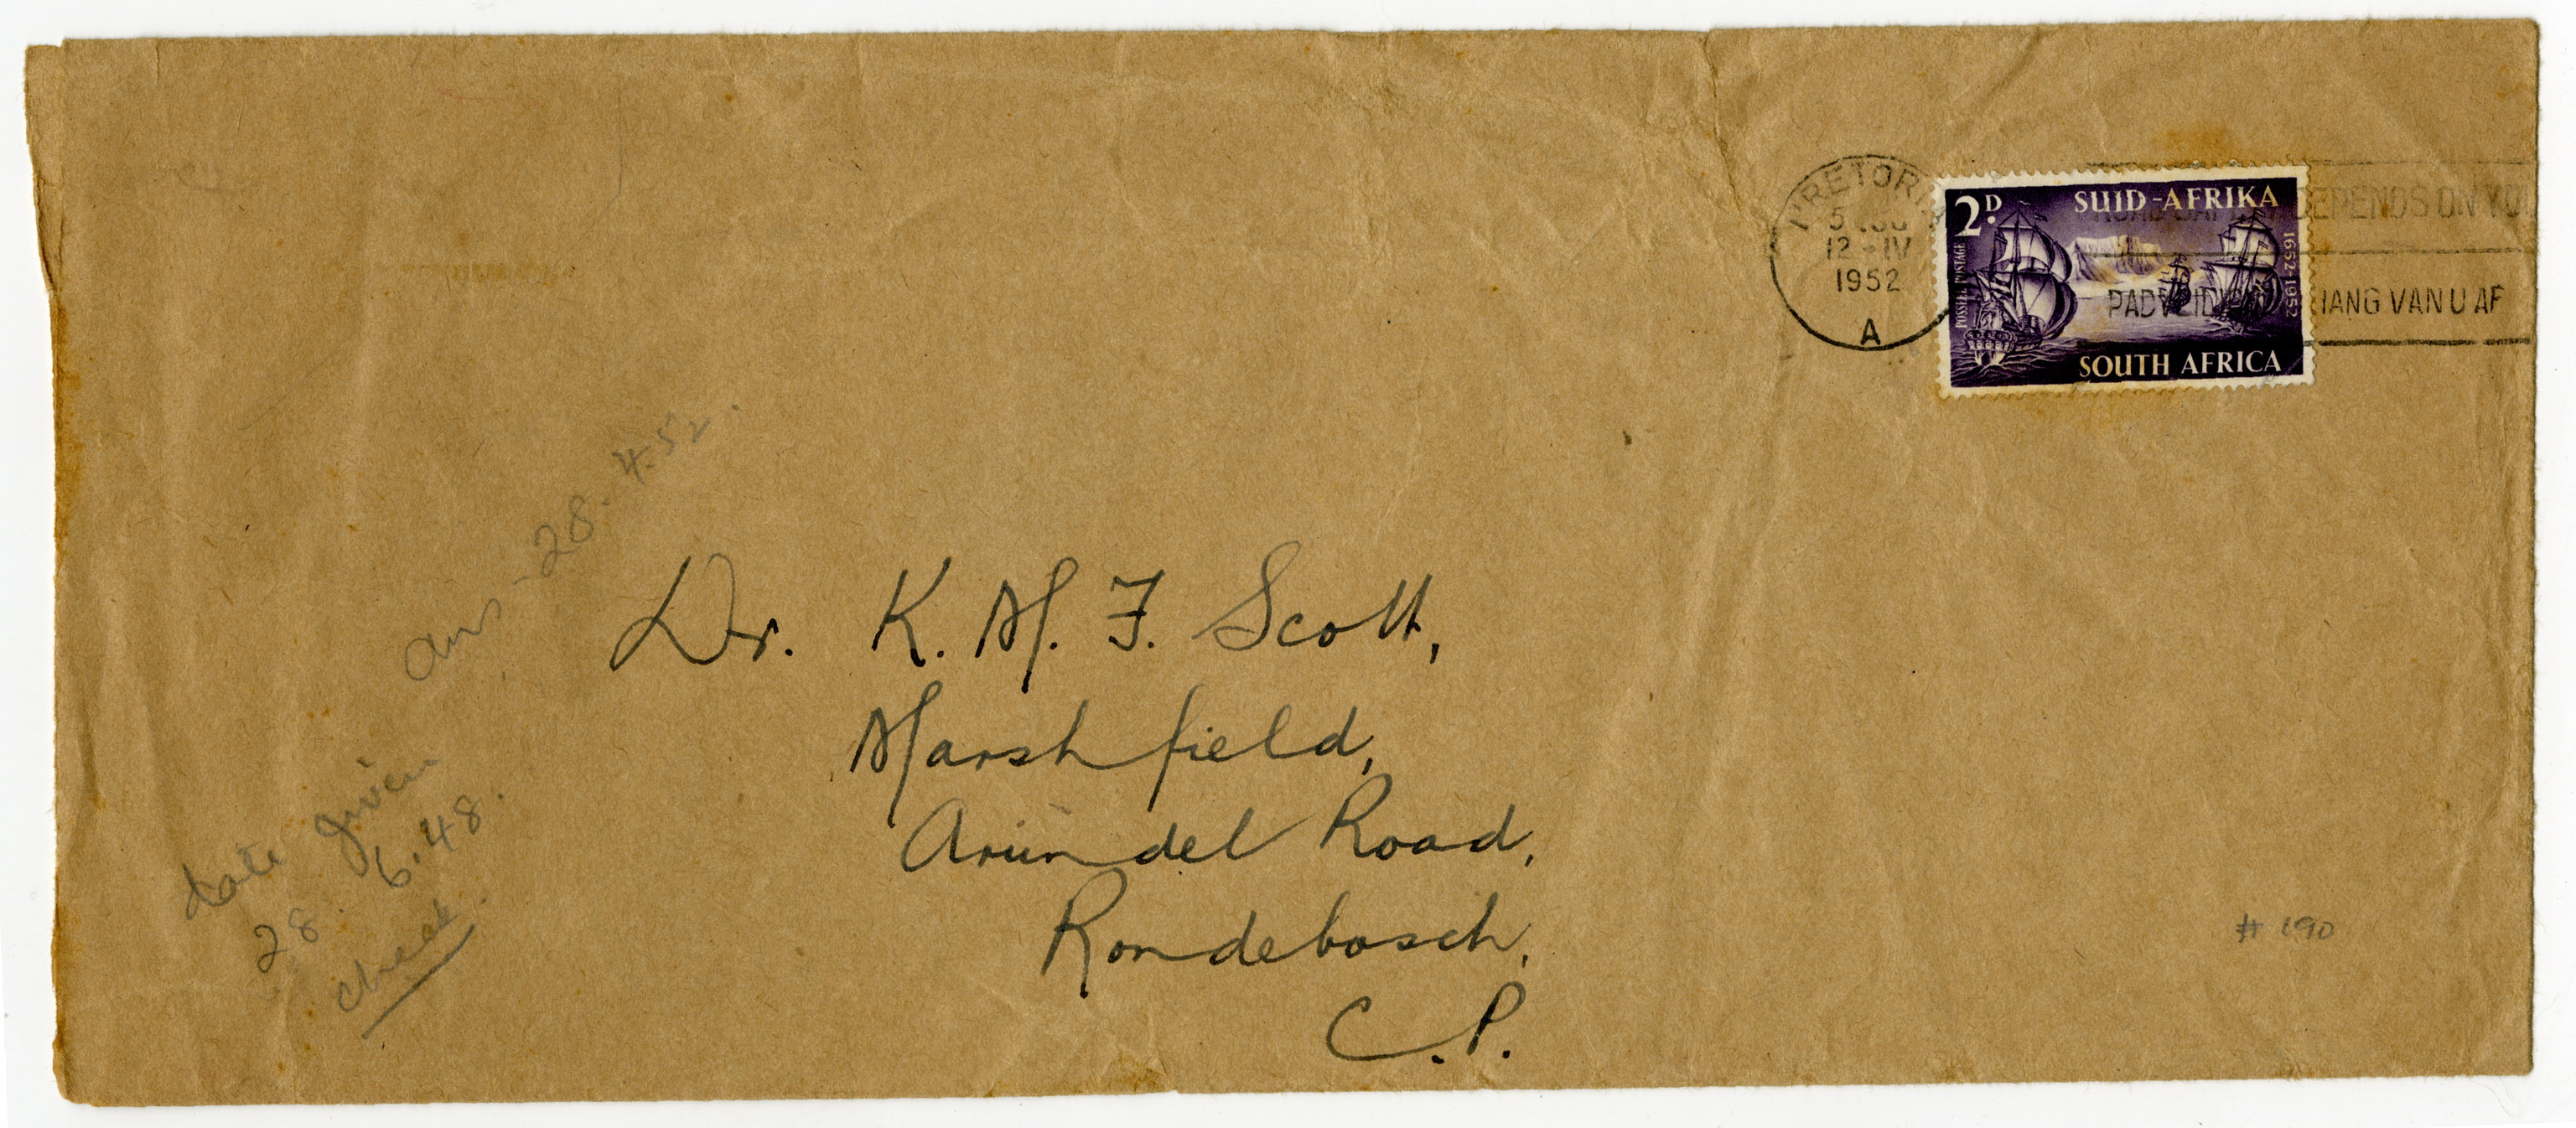 PRETORIA
5 30
12 - IV
1952
A
DEPENDS ON YOU
PADVEILIGHEID HANG VAN U AF
2D.
SUID-AFRIKA
POSSEEL POSTAGE
1652-1952
SOUTH AFRICA
ans - 28.4.52.
Dr. K. M. F. Scott,
Marshfield,
Arundel Road,
Rondebosch,
C.P.
date given
28. 6.48.
check.
# 190